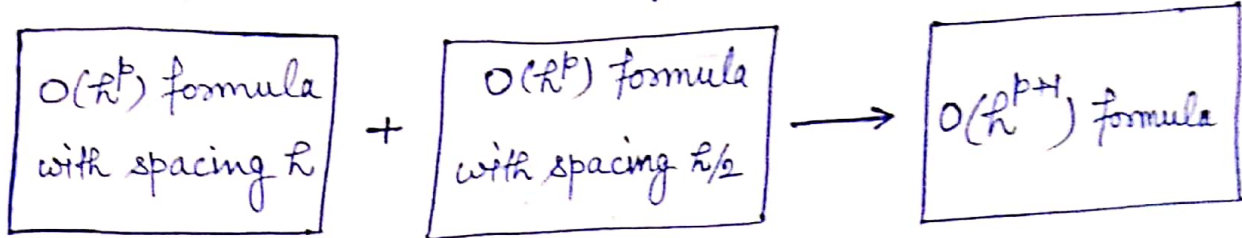 O(h^p) formula
with spacing h
+
O(h^p) formula
with spacing h/2
→
O(h^{p+1}) formula